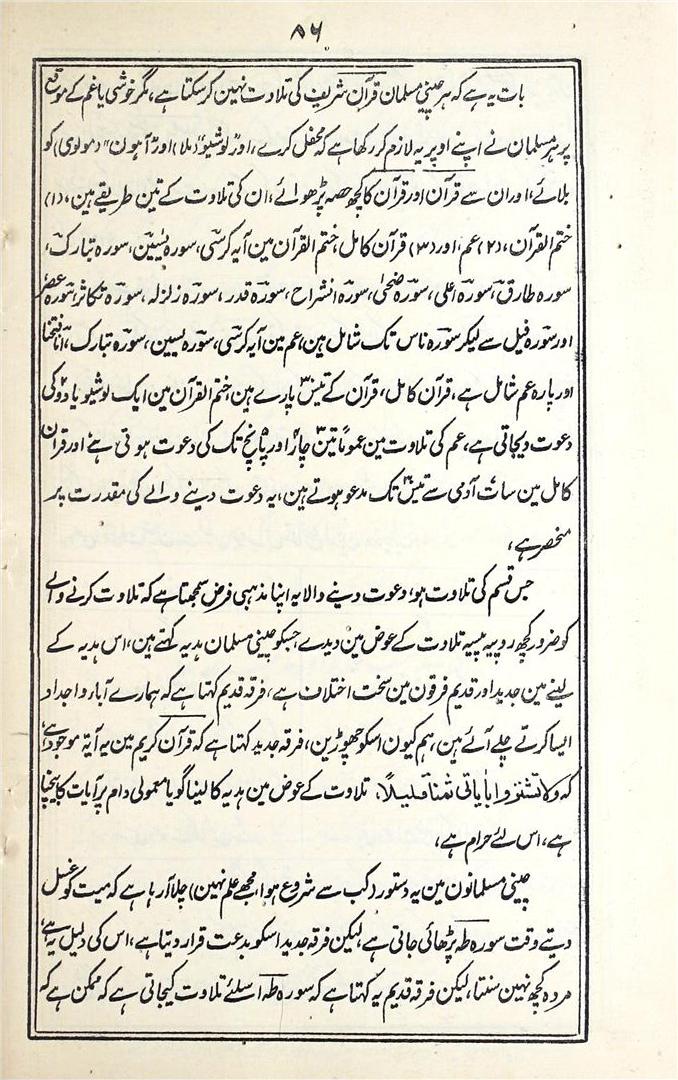 ۵۶
بات یہ ہے کہ ہر چینی مسلمان قرآن شریف کی تلاوت نہین کر سکتا ہے، مگر خوشی یا غم کے موقع
پر ہر مسلمان نے اپنے اوپر یہ لازم کر رکھا ہے کہ محفل کرے، اور "لوشیو" (ملا) اور "آہون" (مولوی) کو
بلائے، اور ان سے قرآن اور قرآن کا کچھ حصہ پڑھوائے، ان کی تلاوت کے تین طریقے ہین، (۱)
ختم القرآن، (۲) عم، اور (۳) قرآن کامل، ختم القرآن مین آیہ کرسی، سورہ یٰسین، سورہ تبارک،
سورہ طارق، سورہ اعلی، سورہ ضحیٰ، سورہ انشراح، سورہ قدر، سورہ زلزلہ، سورہ تکاثر، سورہ عصر
اور سورہ فیل سے لیکر سورہ ناس تک شامل ہین، عم مین آیہ کرسی، سورہ یسین، سورہ تبارک، انا فتحنا
اور پارہ عم شامل ہے، قرآن کامل، قرآن کے تیس ۳۰ پارے ہین، ختم القرآن مین ایک لوشیو یا دو کی
دعوت دیجاتی ہے، عم کی تلاوت مین عموماً تین ۳ چار ۴ اور پانچ ۵ تک کی دعوت ہوتی ہے اور قرآن
کامل مین سات آدمی سے تیس ۳۰ تک مدعو ہوتے ہین، یہ دعوت دینے والے کی مقدرت پر
منحصر ہے،
جس قسم کی تلاوت ہو، دعوت دینے والا یہ اپنا مذہبی فرض سمجھتا ہے کہ تلاوت کرنے والے
کو ضرور کچھ روپیہ پیسہ تلاوت کے عوض مین دیدے، جسکو چینی مسلمان ہدیہ کہتے ہین، اس ہدیہ کے
لینے مین جدید اور قدیم فرقون مین سخت اختلاف ہے، فرقہ قدیم کہتا ہے کہ ہمارے آباء و اجداد
ایسا کرتے چلے آئے ہین، ہم کیون اسکو چھوڑین، فرقہ جدید کہتا ہے کہ قرآن کریم مین یہ آیۃ موجود ہے،
کہ ولا تشتروا باٰیاتی ثمنا قلیلاً، تلاوت کے عوض مین ہدیہ کا لینا گویا معمولی دام پر آیات کا بیچنا
ہے، اس لئے حرام ہے،
چینی مسلمانون مین یہ دستور (کب سے شروع ہوا، مجھے علم نہین) چلا آ رہا ہے کہ میت کو غسل
دیتے وقت سورہ طہ پڑھائی جاتی ہے، لیکن فرقہ جدید اسکو بدعت قرار دیتا ہے، اس کی دلیل یہ ہے،
مردہ کچھ نہین سنتا، لیکن فرقہ قدیم یہ کہتا ہے کہ سورہ طہ اسلئے تلاوت کیجاتی ہے کہ ممکن ہے کہ